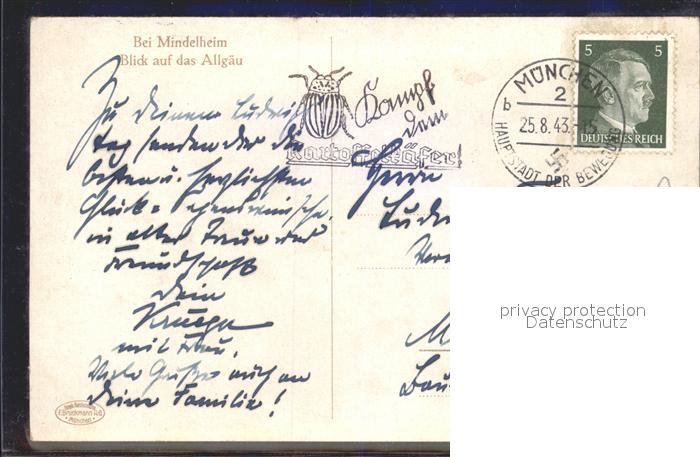 Bei Mindelheim
Blick auf das Allgäu
Kampf
dem
Kartoffelkäfer!
MÜNCHEN
2
b
25.8.43.-15
HAUPTSTADT DER BEWEGUNG
5 5
DEUTSCHES REICH
Zu Deinem Ludwigs
tag senden dir die
besten u. herzlichsten
Glück-
in alter Treue und
Freundschaft
Dein
mit Frau.
Viele Grüße auch an
Deine Familie!
Herrn
privacy protection
Datenschutz
F. Bruckmann A.G.
München